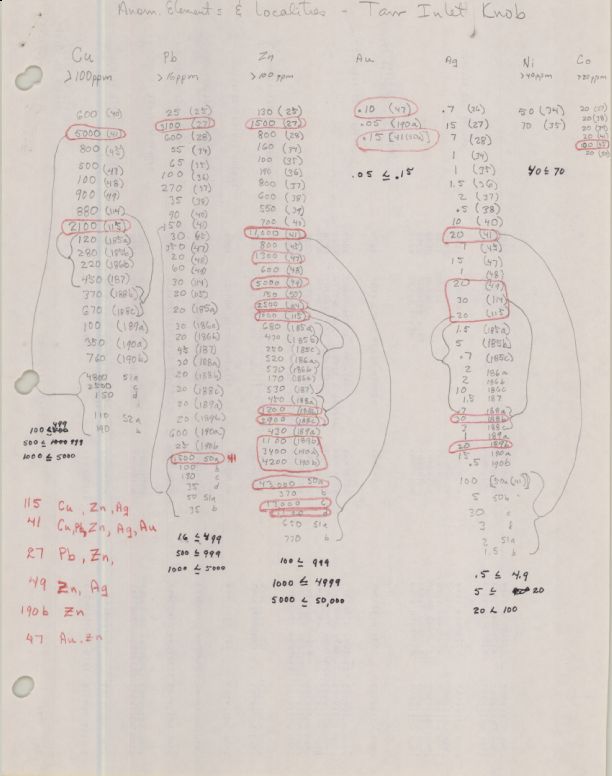 Anom. Elements & Localities - Tarr Inlet Knob
Cu
>100ppm
600 (40)
5000 (41)
800 (45)
500 (47)
100 (48)
900 (49)
880 (114)
2100 (115)
120 (185a)
280 (185b)
220 (186b)
450 (187)
370 (188b)
670 (188c)
100 (189a)
350 (190a)
760 (190b)
4800 51a
2500 c
150 d
110 52a
190 b
499
500 ≤ 999
1000 ≤ 5000
Pb
>16ppm
25 (25)
3100 (27)
600 (28)
55 (34)
65 (35)
100 (36)
270 (37)
35 (38)
90 (40)
150 (40)
30 (45)
350 (47)
20 (48)
60 (49)
30 (114)
20 (115)
20 (185a)
30 (186a)
20 (186b)
45 (187)
30 (188a)
20 (188b)
20 (188c)
20 (189a)
20 (189b)
600 (190a)
25 (190b)
1500 50a 41
100 b
190 c
35 d
50 51a
35 b
16 ≤ 499
500 ≤ 999
1000 ≤ 5000
Zn
>100ppm
130 (25)
1500 (27)
800 (28)
160 (34)
100 (35)
190 (36)
800 (37)
600 (38)
550 (39)
700 (40)
11,000 (41)
800 (45)
1300 (47)
600 (48)
5000 (49)
150 (50)
2500 (114)
1000 (115)
680 (185a)
430 (185b)
250 (185c)
520 (186a)
530 (186b)
170 (186b)
530 (187)
450 (188a)
1200 (188b)
2900 (188c)
430 (189a)
1100 (189b)
3400 (190a)
4200 (190b)
43,000 50a
370 b
13000 c
d
650 51a
770 b
100 ≤ 999
1000 ≤ 4999
5000 ≤ 50,000
Au
.10 (47)
.05 (190a)
.15 [41(50a)]
.05 ≤ .15
Ag
.7 (26)
15 (27)
7 (28)
1 (34)
1 (35)
1.5 (36)
2 (37)
.5 (38)
10 (40)
20 (41)
1 (45)
15 (47)
1 (48)
20 (49)
30 (114)
20 (115)
1.5 (185a)
5 (185b)
.7 (185c)
2 186a
2 186b
10 186c
1.5 187
7 188a
20 188b
3 188c
1 189a
20 189b
15 190a
.5 190b
100 [50a(41)]
5 50b
30 c
3 d
2 51a
1.5 b
.5 ≤ 4.9
5 ≤ 20
20 < 100
Ni
>40ppm
50 (34)
70 (35)
40 ≤ 70
Co
>20ppm
115 Cu, Zn, Ag
41 Cu, Pb, Zn, Ag, Au
27 Pb, Zn,
49 Zn, Ag
190b Zn
47 Au, Zn